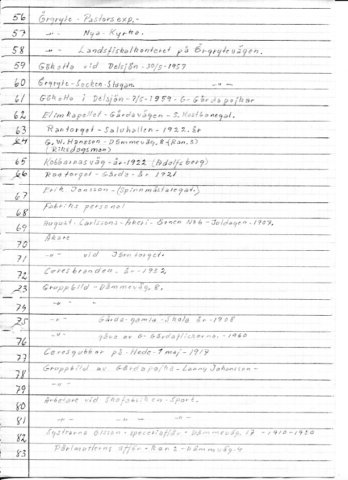 56 Örgryte - Pastorsexp.-
57 -"- Nya-Kyrka.
58 -"- Landsfiskalkontoret på Örgrytevägen.
59 Gökotta vid Delsjön - 30/5-1957
60 Örgryte-Socken-Stugan -"-
61 Gökotta i Delsjön - 7/5-1959 - G-Gårdapojkar
62 Elimkapellet - Gårdavägen - S.
63 Rantorget - Saluhallen - 1922. år
64 G.W. Hansson - Dämmeväg. 8 - (Ran. 3)
(Riksdagsman)
65 Kobbarnas väg - år - 1922 (Adolfsberg)
66 Rootorget - Gårda - år 1921
67 Erik Jansson - (Spinnmästaregat.)
68 Fabriks personal
69 August - Carlssons - Åkeri - Sonen Nils - Juldagen - 1909.
70 Åkare
71 -"- vid Järntorget.
72 Caresbranden. År - 1952
73 Gruppbild - Dämmeväg. 8.
74 -"-
75 -"- Gårda - gamla - Skola år - 1908
76 -"- våra av G. Gårdaflickorna. - 1960
77 Caresgubbar på - Hede - 1 maj - 1919
78 Gruppbild av Gårdapojka - Lonny Johansson -
79 -"-
80 Arbetare vid Skofabriken - Sport.
81 -"- -"- -"-
82 Systrarna Olsson - speceriaffär - Dämmeväg. 17 - 1910-1950
83 affär - Ran 2 - Dämmeväg - 4